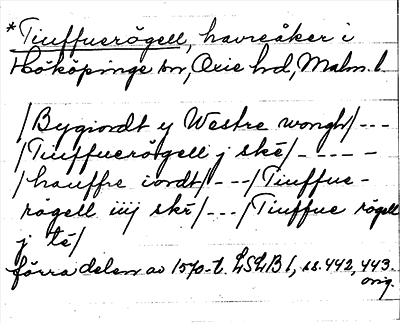 *Tiuffuerögell, havreåker i
Hököpinge sn, Oxie hd, Malm. l
/Bygiordt y Westre wongh/ ---
/Tiuffuerögell j ske/ - - - -
/hauffre iordt/ ---/Tiuffue-
rögell iiij ske/ ---/Tiuffue rögell
j te/
förra delen av 1570-t. LSLB 1, ss. 442, 443.
orig.